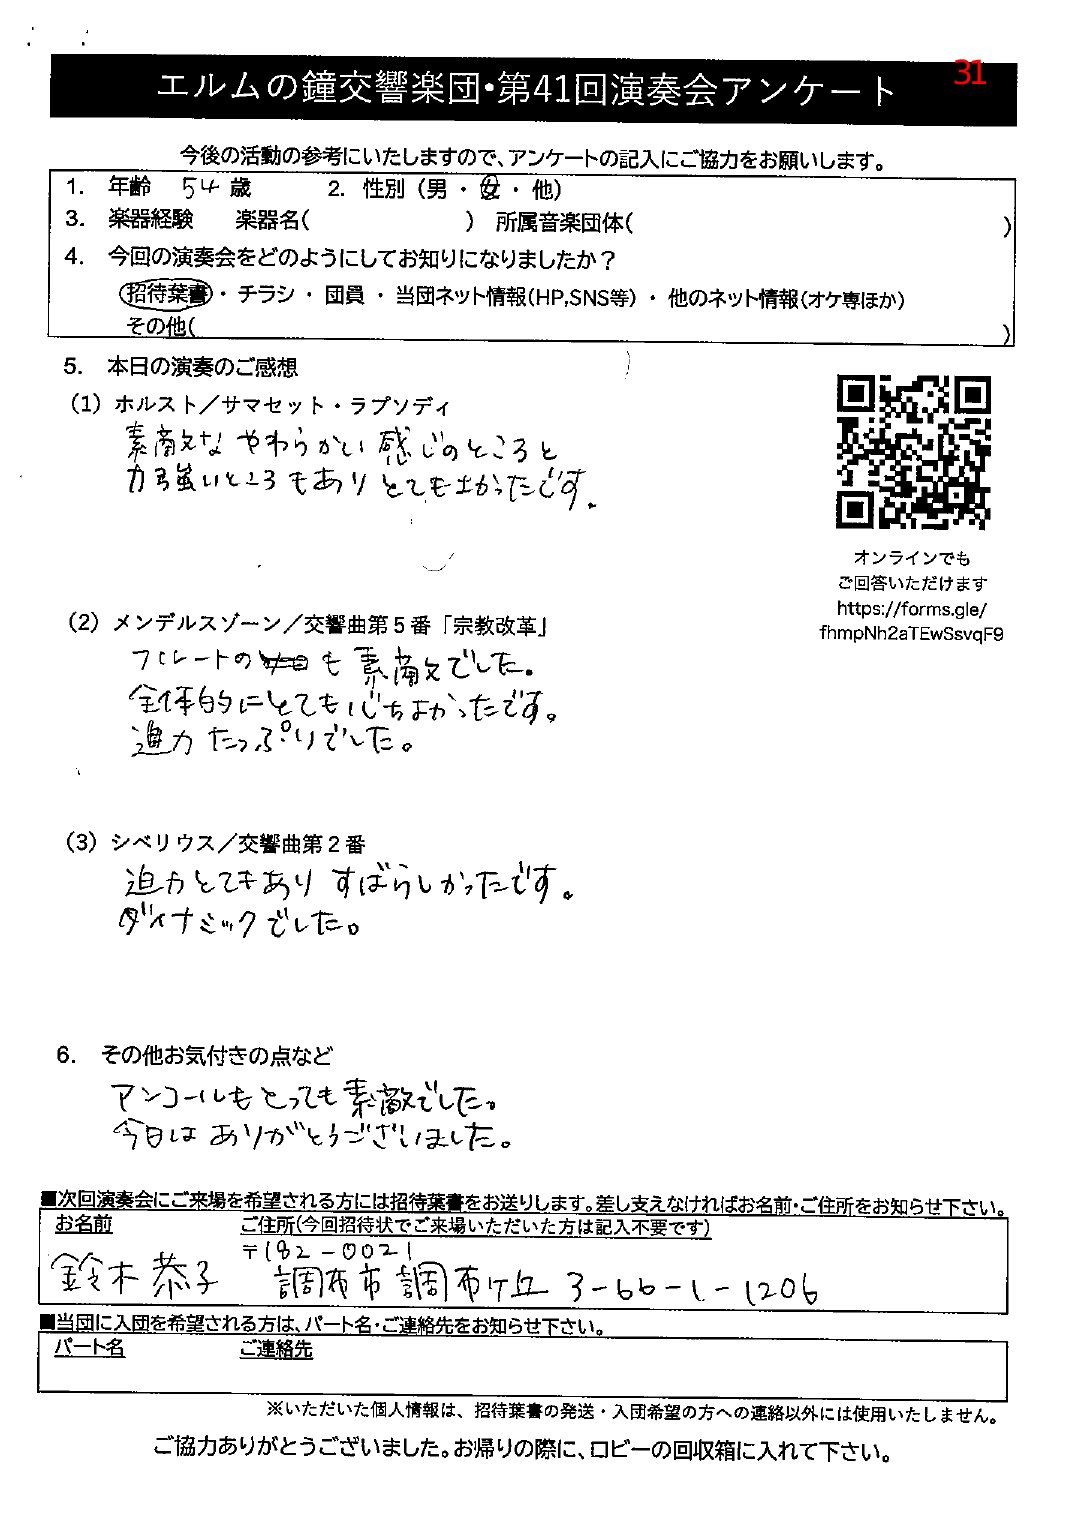 エルムの鐘交響楽団・第41回演奏会アンケート
31
今後の活動の参考にいたしますので、アンケートの記入にご協力をお願いします。
1. 年齢 54 歳 2. 性別 (男 ・ 女 ・ 他)
3. 楽器経験 楽器名( ) 所属音楽団体( )
4. 今回の演奏会をどのようにしてお知りになりましたか？
招待葉書 ・ チラシ ・ 団員 ・ 当団ネット情報(HP,SNS等) ・ 他のネット情報(オケ専ほか)
その他( )
5. 本日の演奏のご感想
(1) ホルスト／サマセット・ラプソディ
素敵な やわらかい 感じのところと
力強いところもあり とてもよかったです.
オンラインでも
ご回答いただけます
https://forms.gle/
fhmpNh2aTEwSsvqF9
(2) メンデルスゾーン／交響曲第５番「宗教改革」
フルートの も 素敵でした。
全体的にとても 心ちよかったです。
迫力 たっぷりでした。
(3) シベリウス／交響曲第２番
迫力とてもあり すばらしかったです。
ダイナミックでした。
6. その他お気付きの点など
アンコールもとっても素敵でした。
今日は ありがとうございました。
■次回演奏会にご来場を希望される方には招待葉書をお送りします。差し支えなければお名前・ご住所をお知らせ下さい。
お名前 ご住所(今回招待状でご来場いただいた方は記入不要です)
〒182-0021
鈴木 恭子 調布市 調布ケ丘 3-66-1-1206
■当団に入団を希望される方は、パート名・ご連絡先をお知らせ下さい。
パート名 ご連絡先
※いただいた個人情報は、招待葉書の発送・入団希望の方への連絡以外には使用いたしません。
ご協力ありがとうございました。お帰りの際に、ロビーの回収箱に入れて下さい。